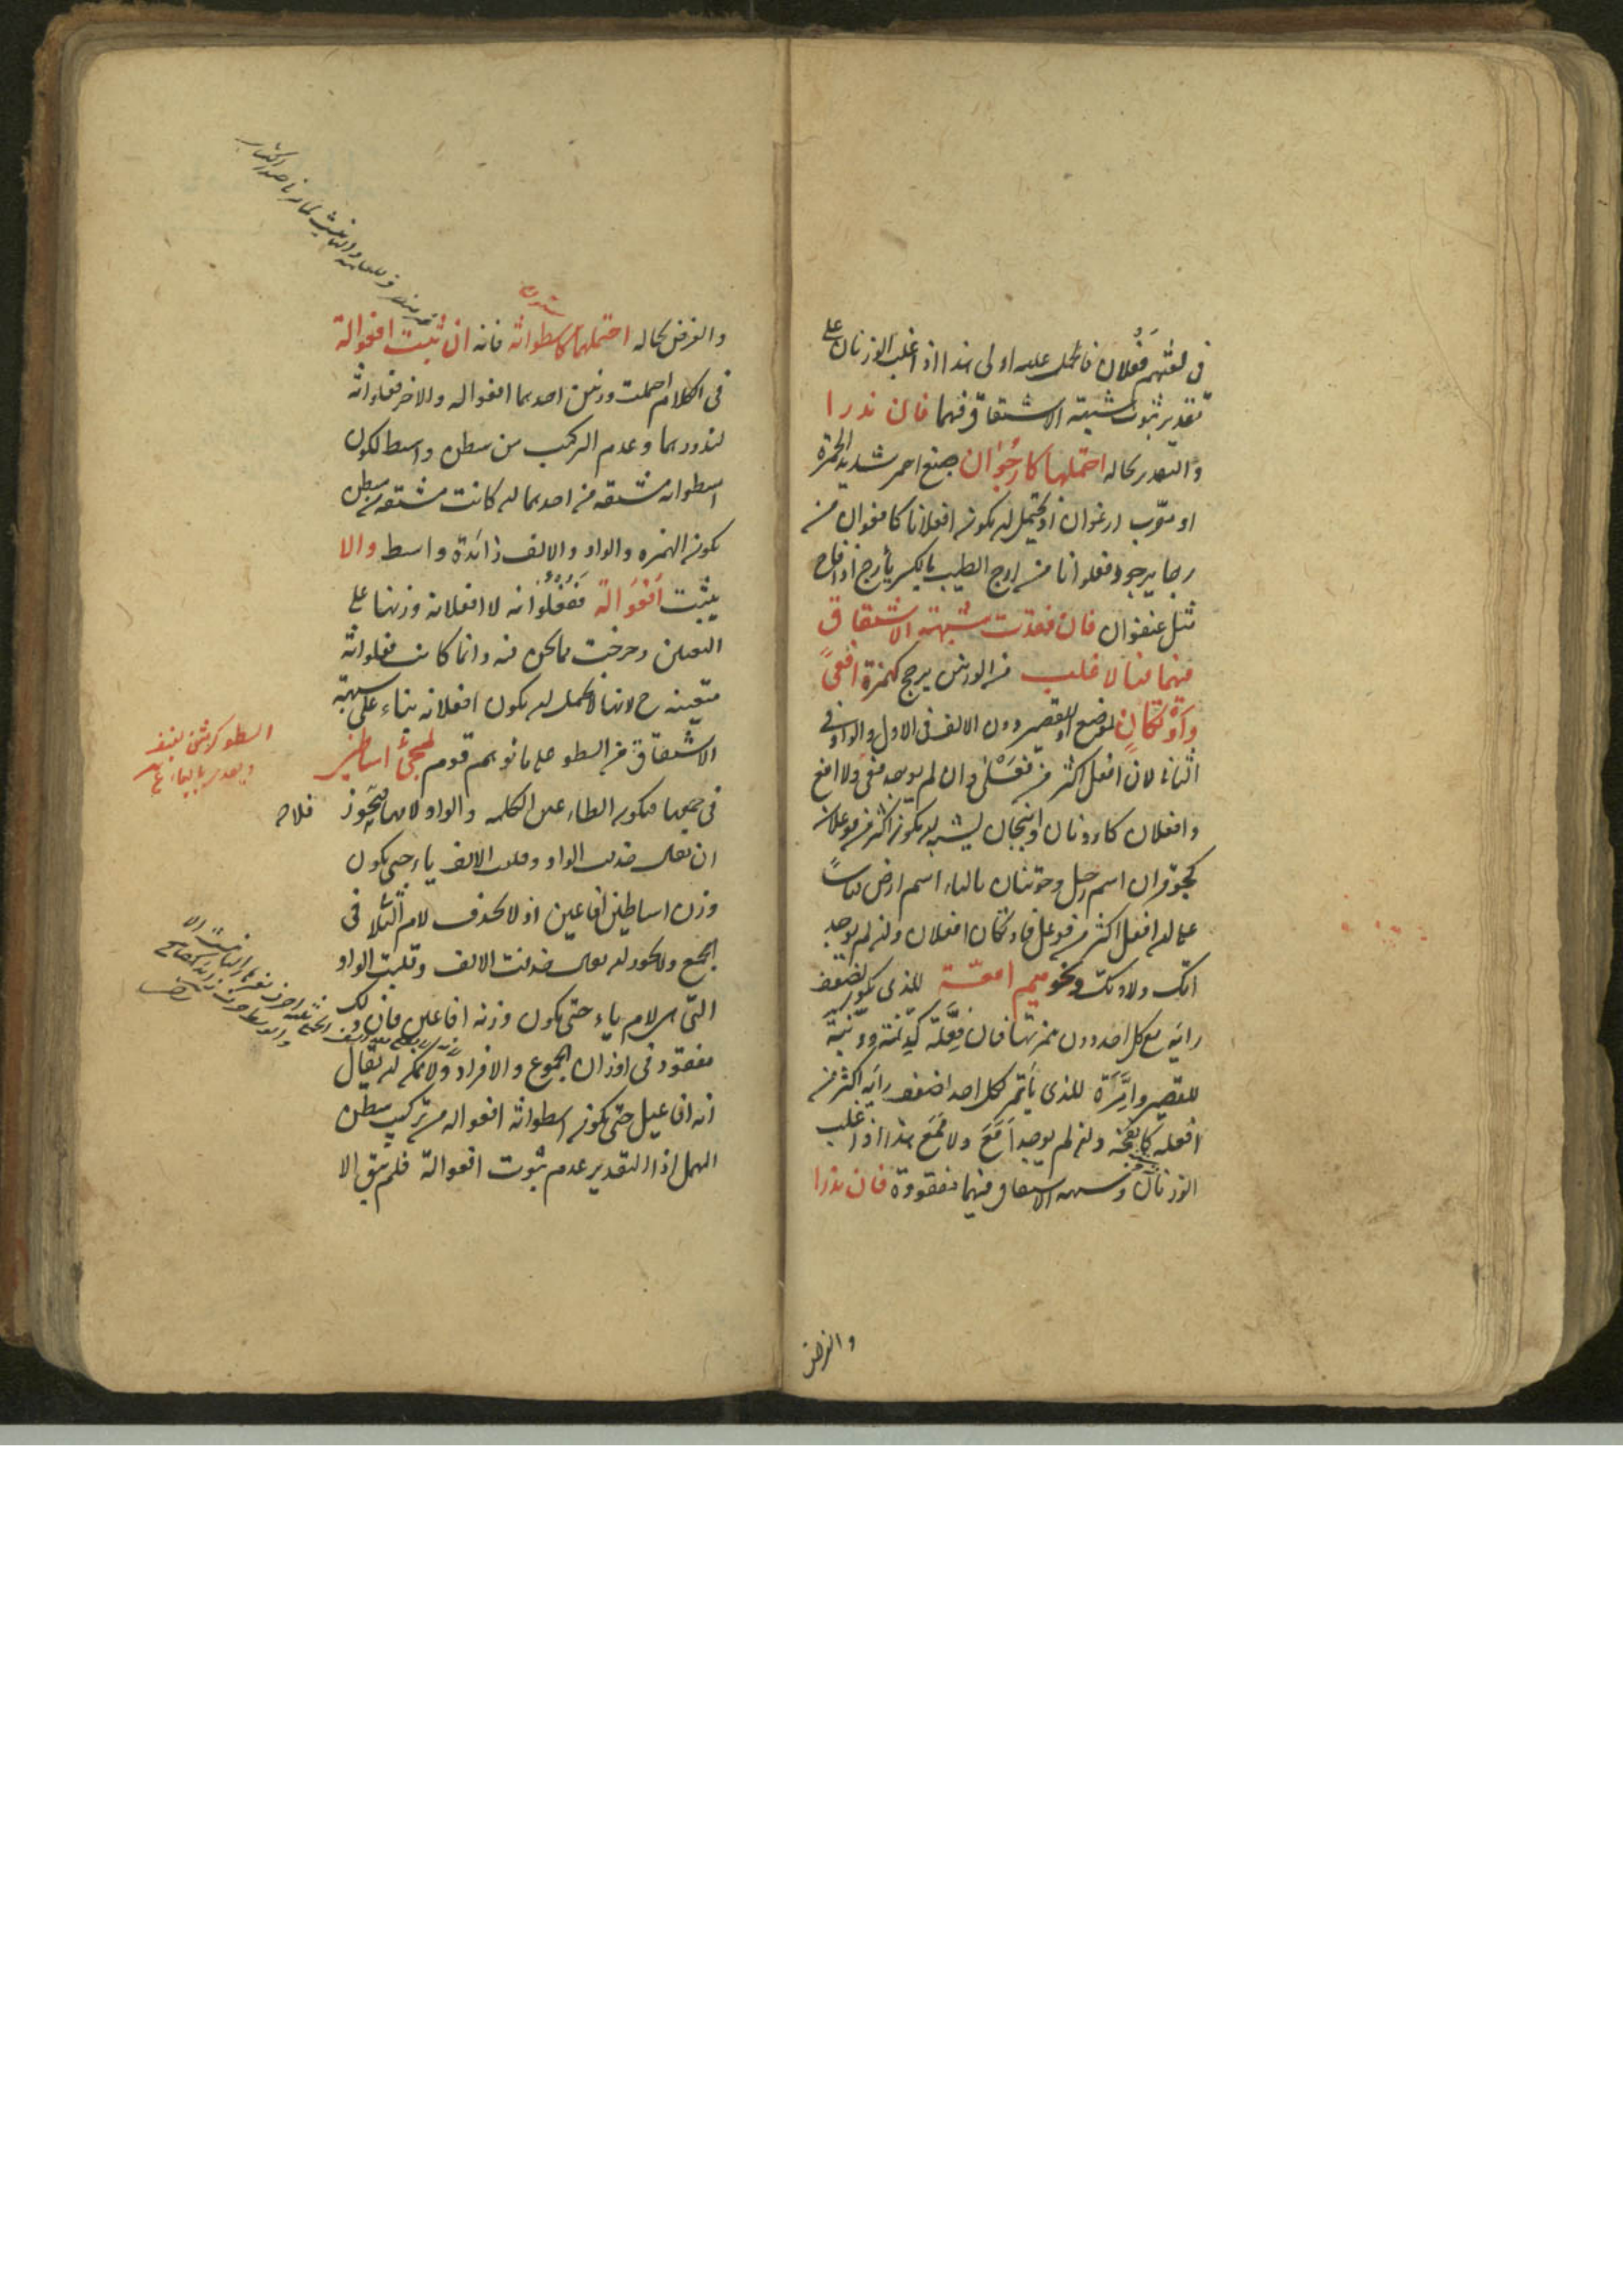 في لغتهم فعلان فالحمل عليه اولى هذا اذا غلب الوزنان على
تقدير ثبوت شبهة الاشتقاق فيهما فان ندرا
والتقدير بحاله احتملهما كارجوان صبغ احمر شديد الحمرة
او معرب ارغوان اذ يحتمل ان يكون افعلانا كافعوان من
رجا يرجو وفعلوانا من ارج الطيب بالكسر يأرج اذا فاح
مثل عنفوان فان فقدت شبهة الاشتقاق
فيهما فبالاغلب من الوزنين يرجح كهمزة افعى
واوتكان لموضع او للقصير دون الالف في الاول والواو في
الثاني لان افعل اكثر من فعلى وان لم يوجد فعى ولا افع
وافعلان كارونان وانبجان يشبه ان يكون اكثر من فوعلان
كحوفران اسم رجل وحوتنان بالتاء اسم ارض قياسا
على ان افعل اكثر من فوعل فاوتكان افعلان وان لم يوجد
اتك ولا وتك ونحو ميم امعة للذي يكون لضعف
رايه مع كل احد دون همزتها فان فعلة كدنمة ودنبة
للقصير وامرة للذي يأتمر لكل احد لضعف رايه اكثر من
افعلة كانفحة وان لم يوجد امع ولا ممع هذا اذا غلب
الوزنان وشبهة الاشتقاق فيهما مفقودة فان ندرا
والفرض
والفرض بحاله احتملهما كاسطوانة فانه ان ثبت افعوالة
في الكلام احتملت وزنين احدهما افعوالة والاخر فعلوانة
لندورهما وعدم التركيب من سطن واسط لكون
اسطوانة مشتقة من احدهما ان كانت مشتقة من سطن
يكون الهمزة والواو والالف زائدة واسط والا
يثبت افعوالة ففعلوانة لا افعلانة وزنها على
التعيين وخرجت مما نحن فيه وانما كانت فعلوانة
متعينة ح لانها لا تحتمل ان يكون افعلانة بناء على شبهة
الاشتقاق من السطو على ما توهم قوم لمجيء اساطين
في جمعها فيكون الطاء عين الكلمة والواو لامها فلا يجوز
ان يقال حذفت الواو وقلبت الالف ياء حتى يكون
وزن اساطين افاعين اذ لا يحذف لام الثلاثي في
الجمع ولا يجوز ان يقال حذفت الالف وقلبت الواو
التي هي لام ياء حتى يكون وزنه افاعلن فان ذلك
مفقود في اوزان الجموع والافراد ولا يمكن ان يقال
انه افاعيل حتى يكون اسطوانة افعوالة من تركيب سطن
المهمل اذ التقدير عدم ثبوت افعوالة فلم يبق الا